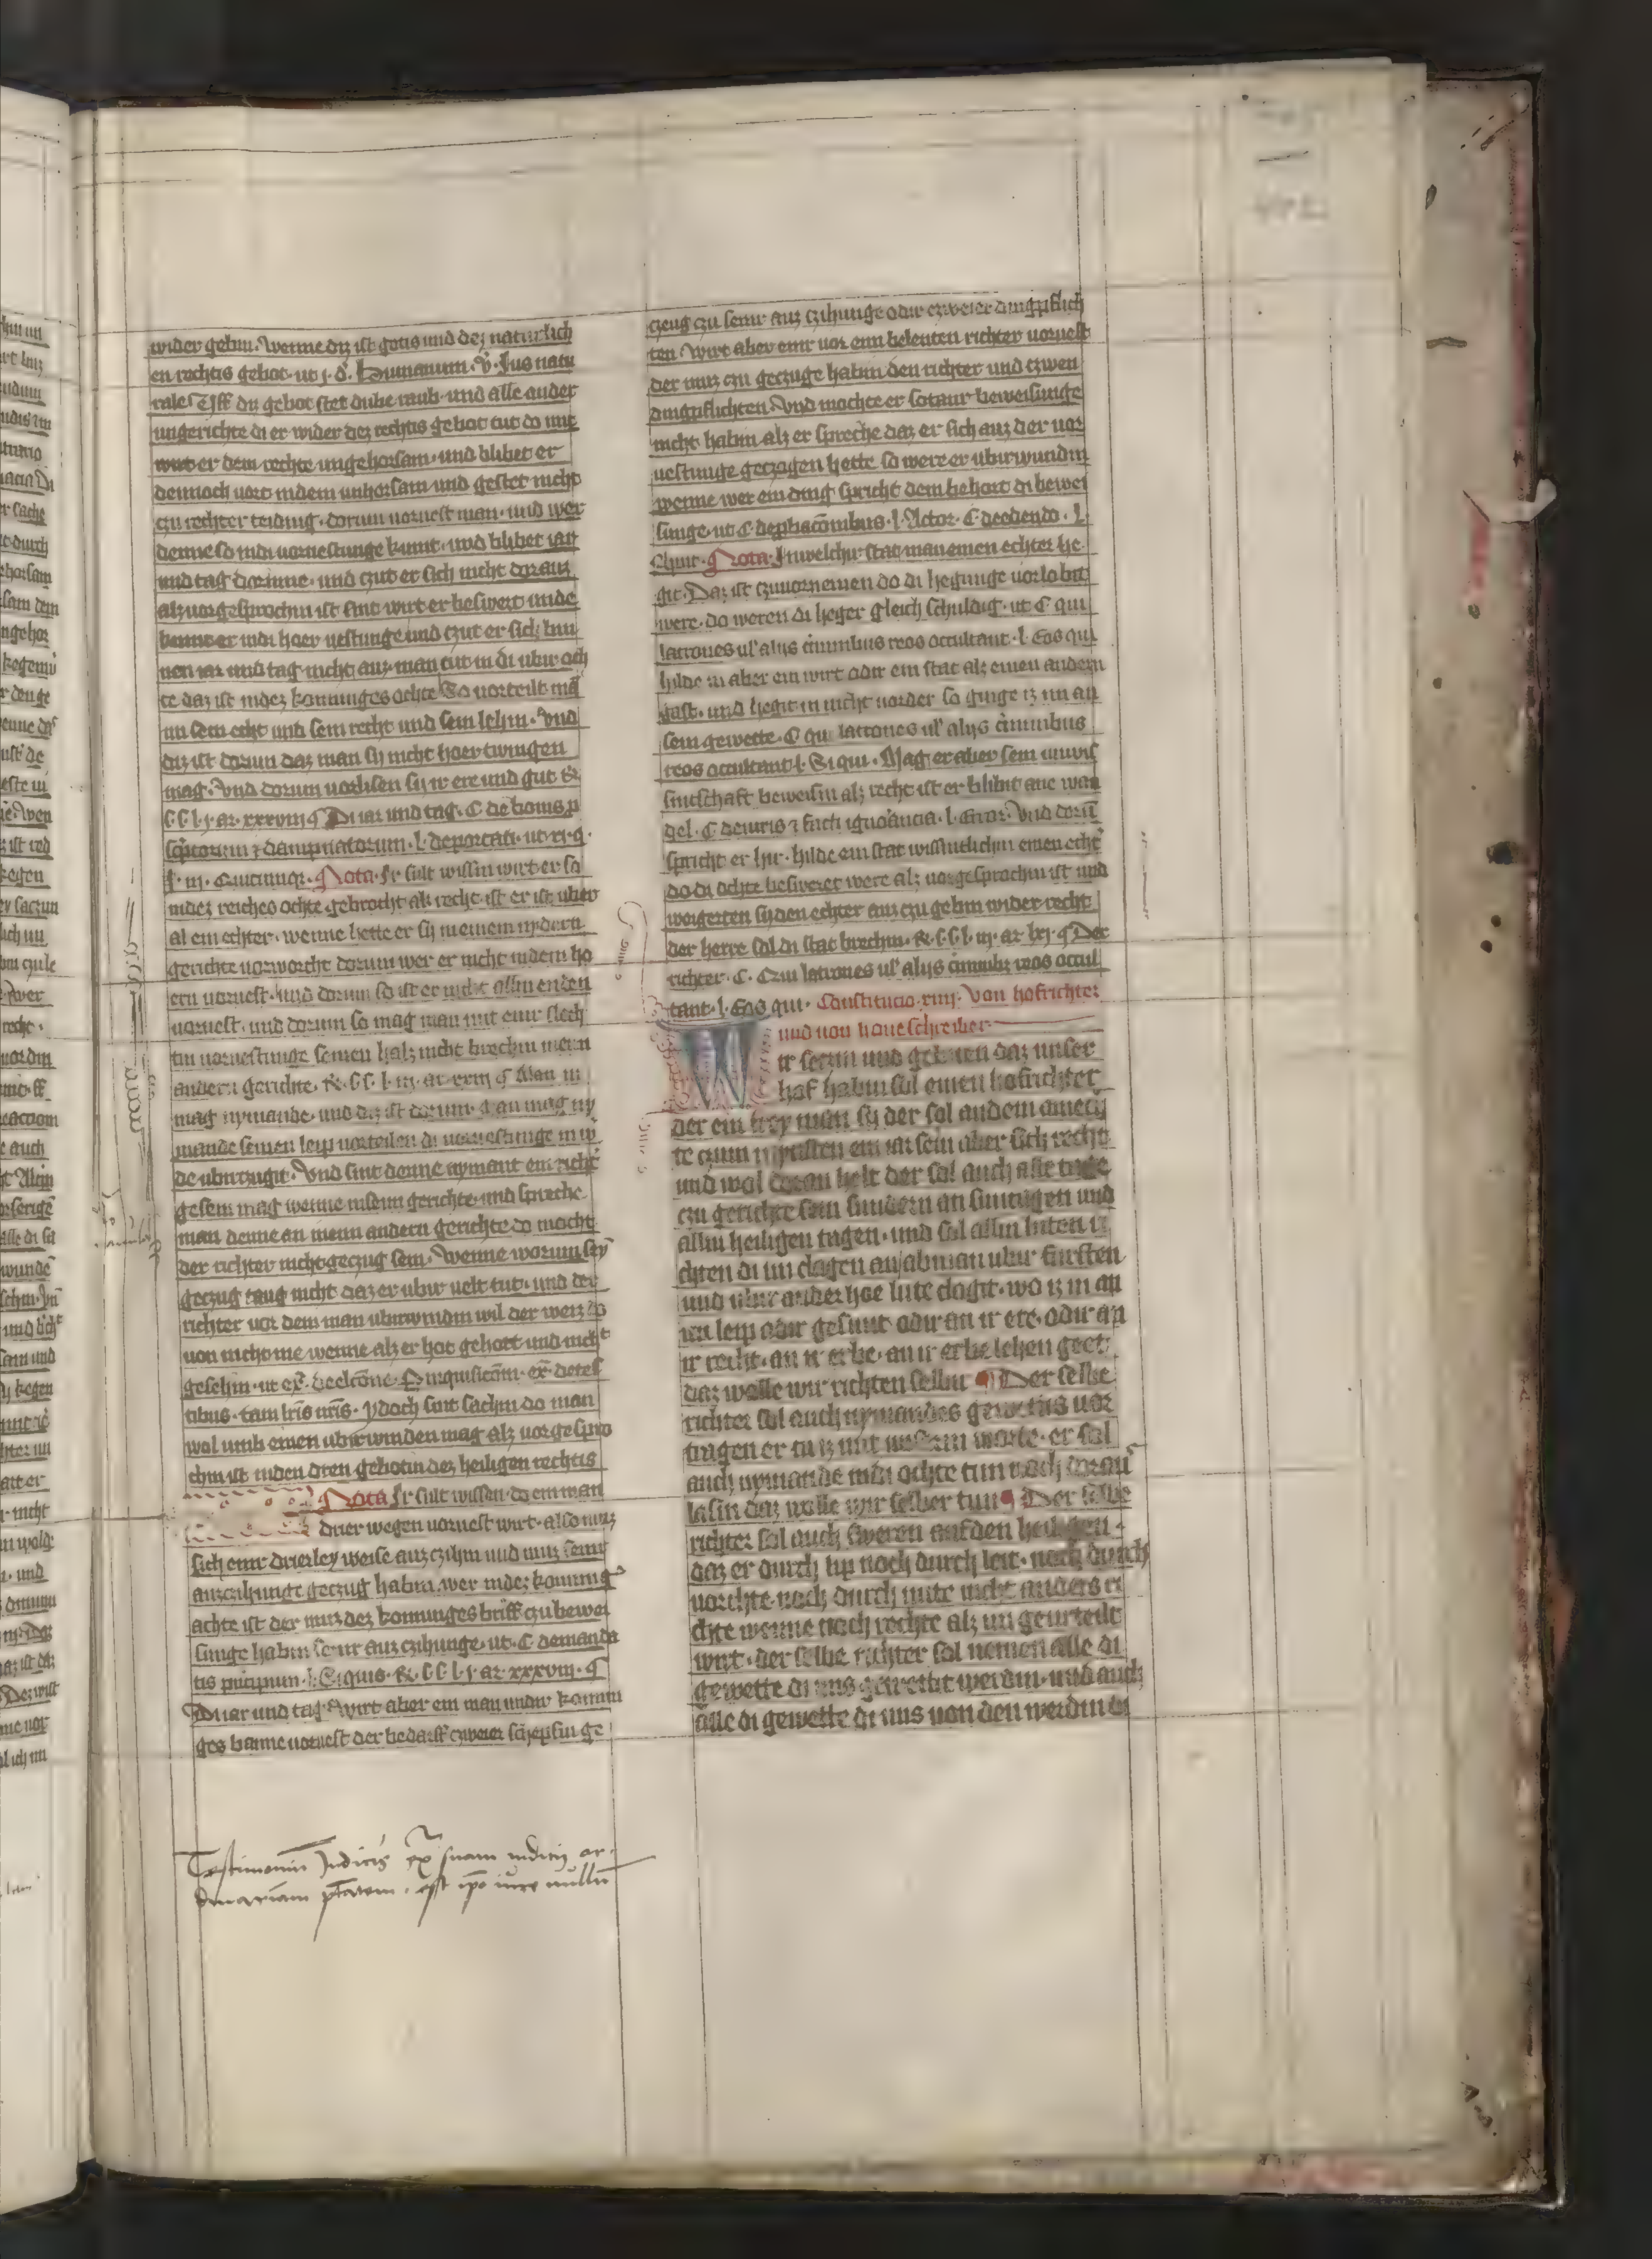 wider gebin. Wenne diz ist gotis und dez naturlich
en rechtis gebot. ut j. d. Humanum. v. Jus natu
rale Uff dy gebot stet dube raub. und alle ander
ungerichte di er wider dez rechtis gebot tut do mit
wirt er dem rechte ungehorsam. und blibet er
dennoch vort indem unhorsam und gestet nicht
czu rechter teiding. dorum vorvest man. und wer
denne so indi vorvestunge kumt. und blibet iar
und tag dorinne. und czut er sich nicht doraus
alz vorgesprochin ist sint wirt er beswert unde
kumt er indi hoer vestunge und czut er sich bin
nen iar und tag nicht auz. man tut in di ubir och
te daz ist indez konninges ochte So vorteilt mā
im sein echt und sein recht und sein lehin. Und
diz ist dorum daz man sy nicht hoer twingen
mag. Und dorum vorlisen sy ir ere und gut
l. j. ar. xxxviij ¶ Di iar und tag. C. de bonis p
scptorum z dampnatorum. l. deportati. ut vj. q.
j. iij. Quicunqz. Nota. Jr sult wissin wirt er so
indez reiches ochte gebrocht alz recht ist er ist ubir
al ein echter. wenne hette er sy in einem nydern
gerichte vorworcht dorum wer er nicht indem ho
ern vorvest. und dorum so ist er nicht allin enden
vorvest. und dorum so mag man mit einir slech
tin vorvestunge seinen halz nicht brechin inein
andern gerichte. l. iij. ar. xxiij ¶ Man in
mag nymande. und diz ist dorum. man mag ny
mande seinen leip vorteilen di vorvestunge in w
de ubirczugit. Und sint denne nymant ein richt
gesein mag wenne inseim gerichte und spreche
man denne an ineim andern gerichte do mocht
der richter nicht geczug sein. Wenne worum sey
geczug taug nicht daz er ubir velt tut. und der
richter vor dem man ubirwindin wil der weiz do
von nicht me wenne alz er hot gehort und nicht
gesehin. ut
tibus. tam lris nris. ydoch sint sachin do man
wol umb einen ubirwinden mag alz vorgespro
chin ist inden dren gebotin dez heiligen rechtis
Nota Jr sult wissen. do ein man
drier wegen vorvest wirt. also muz
sich einir drierley weise auz czihin und muz seinir
auzczihunge geczug habin. wer indez konning
achte ist der muz dez konninges briff czu bewei
sunge habin seinir auz czihunge. ut. C. demanda
tis principum. l. Si quis. l. j. ar. xxxviij. ¶
Di iar und tag. Wirt aber ein man undir konin
ges banne vorvest der bedarff czweier schepfin ge
czeug czu seinir auz czihunge odir czweier dingpflich
ten. Wirt aber einir vor eim belenten richter vorvest
der muz czu geczuge habin den richter und czwen
dingpflichten. Und mochte er sotanir beweisunge
nicht habin alz er spreche daz er sich auz der vor
vestunge geczogen hette so were er ubirwundin
wenne wer ein ding spricht dem behort di bewei
sunge. ut C. de l. Actor. C. deedendo. l.
Nota. Jnwelchir stat man einen echter he
git. Daz ist czuvornemen do di hegunge vorlobit
were. do weren di heger gleich schuldig. ut C. qui
latrones ul' alijs criminibus reos occultant. l. Eos qui
hilde in aber ein wirt odir ein stat alz einen andern
gast. und hegit in nicht vorder so ginge iz im an
sein gewette. C. qui latrones ul' alijs criminibus
reos occultant. l. Si qui. Mag er aber sein unwis
sinschaft beweisin alz recht ist er blibit ane wan
gel. C. deiuris z facti ignorancia. l. Error. Und dorū
spricht er hir. hilde ein stat wissintlichin einen echt
do di ochte besweret were alz vorgesprochin ist und
weigerten sy den echter auz czu gebin wider recht
der herre sol di stat brechin. l. iij. ar. lxj. ¶ Der
richter. C. Qui latrones ul' alijs criminibz reos occul
tant. l. Eos qui. Constitucio. xiiij. Von hofrichter
und von hoveschreiber
Wir seczin und gebiten daz unser
hof habin sol einen hofrichter
der ein frey man sy der sol andem amech
te czum mynsten ein iar sein aber sich recht
und wol doran helt der sol auch alle tage
czu gerichte sein sundern an suntagen und
allin heiligen tagen. und sol allin luten ri
chten di im clagen an ab man ubir fursten
und ubir ander hoe lute clagit. wo iz in an
irn leip odir gesunt odir an ir ere. odir an
ir recht. an ir erbe. an ir erbelehen geet
daz wolle wir richten selbir ¶ Der selbe
richter sol auch nymandes gewettis vor
tingen er tu iz mit unserm worte. er sol
auch nymande indi ochte tun noch dorau
lasin daz wolle wir selber tun ¶ Der selbe
richter sol auch sweren auf den heiligen
daz er durch lip noch durch leit. noch durch
vorchte noch durch mite nicht anders ri
chte wenne noch rechte alz im geurteilt
wirt. der selbe richter sol nemen alle di
gewette di uns gewettit werdin. und auch
alle di gewette di uns von den werdin di
Testimonium Judicis extra suam iudicij or
dinariam ptatem. est ipso iure nullū